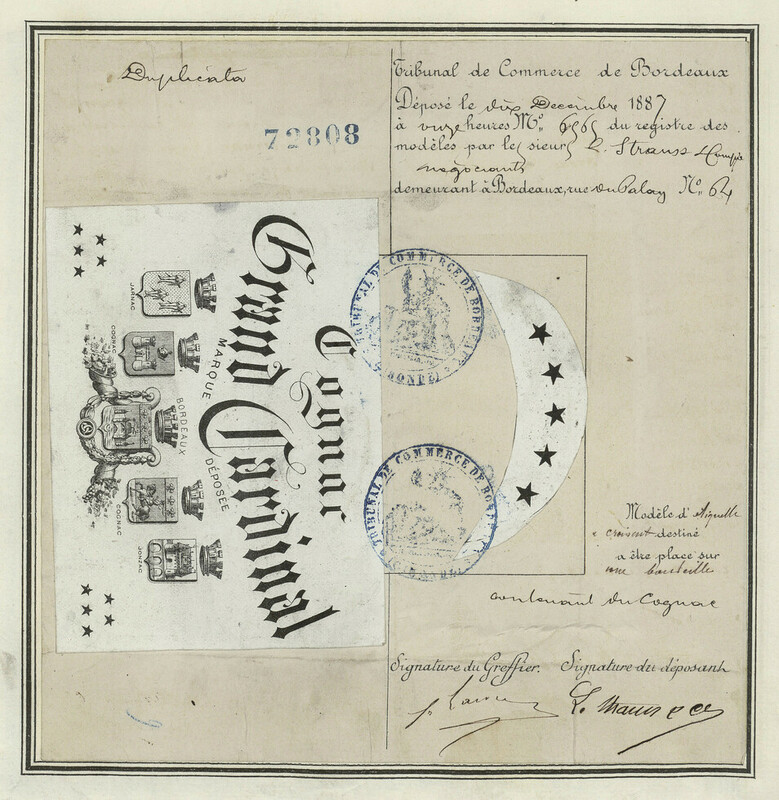 Duplicata
72808
Tribunal de Commerce de Bordeaux
Déposé le dix Decembre 1887
à onze heures Mo. 6565 du registre des
modèles par les sieurs L. Strauss & Compie
negociants
demeurant à Bordeaux, rue du Palay No. 64
Cognac
Grand Cardinal
MARQUE DÉPOSÉE
JARNAC
COGNAC
BORDEAUX
COGNAC
JONZAC
TRIBUNAL DE COMMERCE DE BORDEAUX
TRIBUNAL DE COMMERCE DE BORDEAUX
Modèle d'étiquette
croissant destiné
a être place sur
une bouteille
contenant du Cognac
Signature du Greffier. Signature du déposant